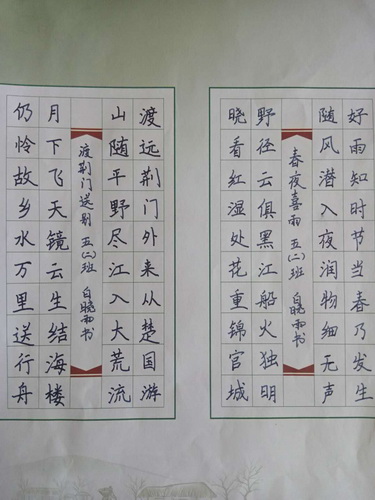 好雨知时节当春乃发生
随风潜入夜润物细无声
春夜喜雨 五(二)班 白晓雨书
野径云俱黑江船火独明
晓看红湿处花重锦官城
渡远荆门外来从楚国游
山随平野尽江入大荒流
渡荆门送别 五(二)班 白晓雨书
月下飞天镜云生结海楼
仍怜故乡水万里送行舟